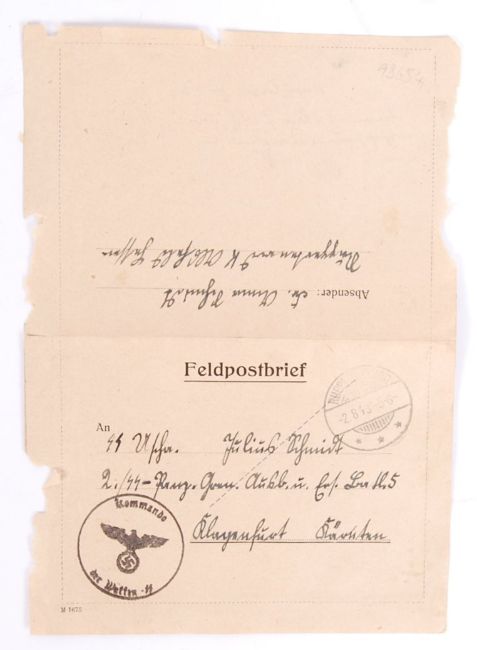 Absender: Fr. Anna Schmidt
Feldpostbrief
-2.8.43
An
SS Uscha. Julius Schmidt
2./SS-Panz. Gren. Ausb. u. Ers. Batl. 5
Klagenfurt Kärnten.
Kommando
der Waffen-SS
M 1675